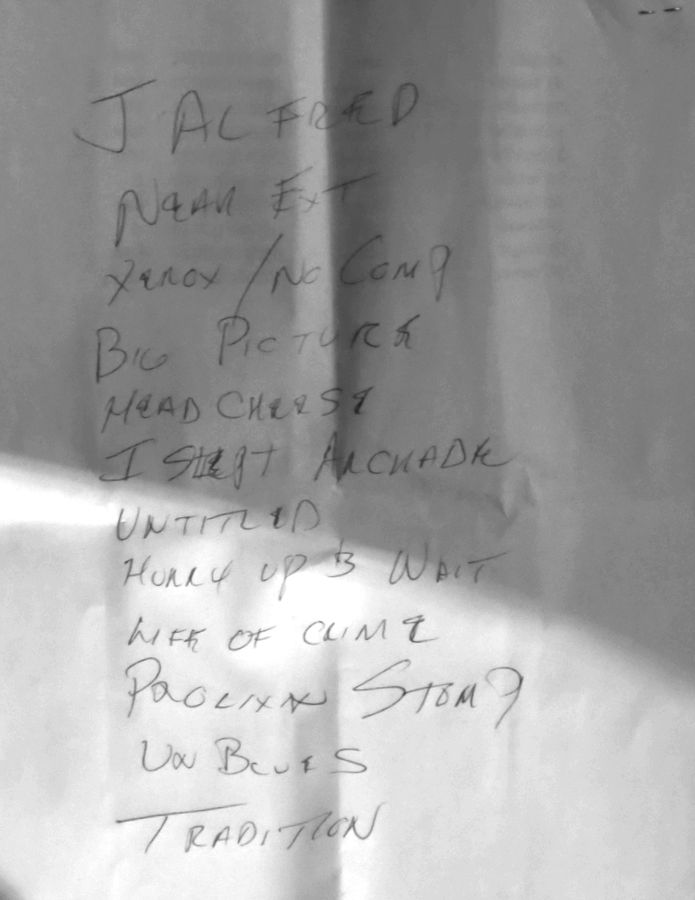 J ALFRED
NEAR EXT
XEROX / NO COMP
BIG PICTURE
HEAD CHEESE
I SLEPT ARCHADE
UNTITLED
HURRY UP & WAIT
LIFE OF CRIME
PROLIXIN STOMP
UN BLUES
TRADITION